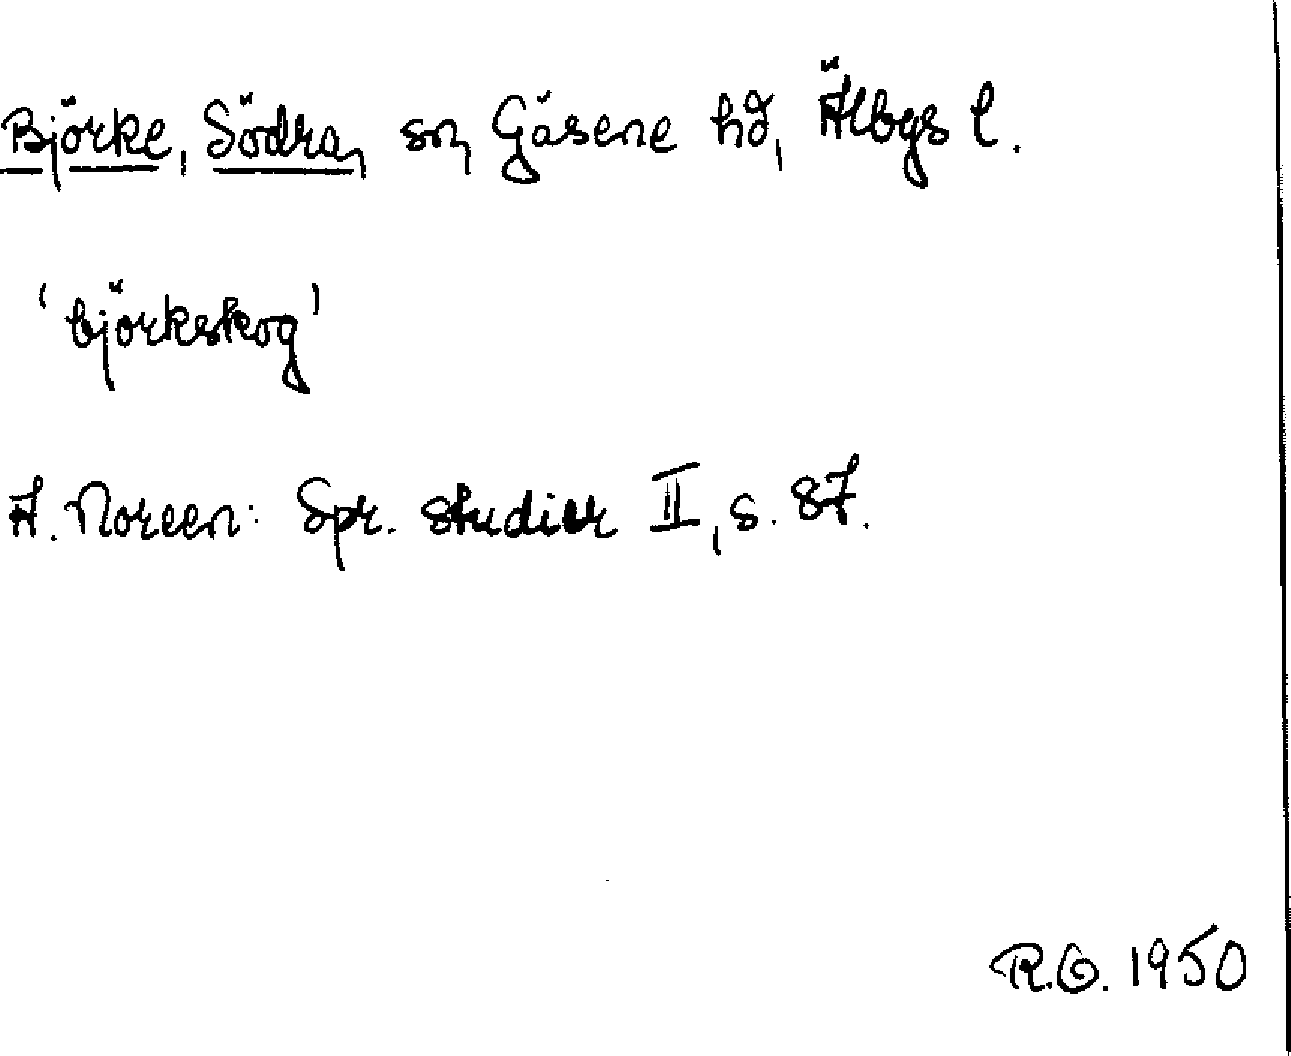 Björke, Södra, sn, Gäsene hd, Älvbgs l.
'björkskog'
A. Noreen: Spr. studier II, s. 87.
R.O. 1950